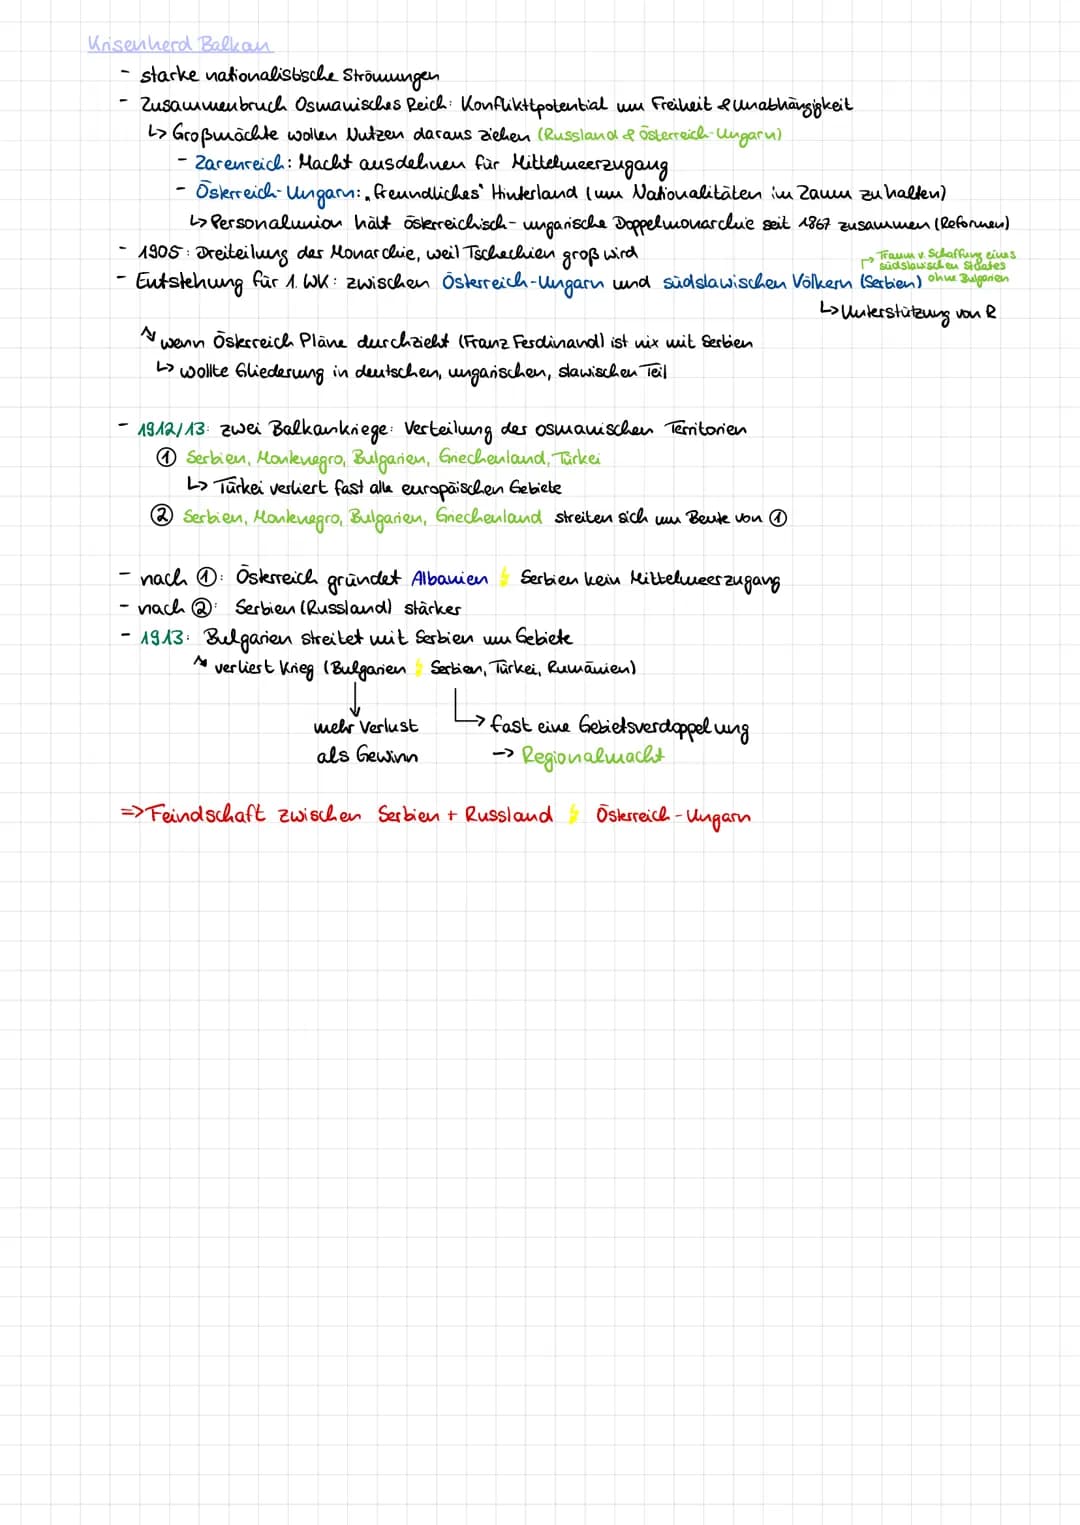 Krisenherd Balkan
- starke nationalistische Strömungen
- Zusammenbruch Osmanisches Reich: Konfliktpotential um Freiheit & Unabhängigkeit
↳ Großmächte wollen Nutzen daraus ziehen (Russland & Österreich-Ungarn)
- Zarenreich: Macht ausdehnen für Mittelmeerzugang
- Österreich-Ungarn: „freundliches“ Hinterland (um Nationalitäten im Zaum zu halten)
↳ Personalunion hält österreichisch-ungarische Doppelmonarchie seit 1867 zusammen (Reformen)
- 1905: Dreiteilung der Monarchie, weil Tschechien groß wird
→ Traum v. Schaffung eines
südslawischen Staates
ohne Bulgarien
- Entstehung für 1. WK: zwischen Österreich-Ungarn und südslawischen Völkern (Serbien)
↳ Unterstützung von R
wenn Österreich Pläne durchzieht (Franz Ferdinand) ist nix mit Serbien
↳ wollte Gliederung in deutschen, ungarischen, slawischen Teil
- 1912/13: zwei Balkankriege: Verteilung der osmanischen Territorien
① Serbien, Montenegro, Bulgarien, Griechenland, Türkei
↳ Türkei verliert fast alle europäischen Gebiete
② Serbien, Montenegro, Bulgarien, Griechenland streiten sich um Beute von ①
- nach ①: Österreich gründet Albanien ⚡ Serbien kein Mittelmeerzugang
- nach ②: Serbien (Russland) stärker
- 1913: Bulgarien streitet mit Serbien um Gebiete
verliert Krieg (Bulgarien ⚡ Serbien, Türkei, Rumänien)
mehr Verlust
als Gewinn
→ fast eine Gebietsverdoppelung
-> Regionalmacht
=> Feindschaft zwischen Serbien + Russland ⚡ Österreich-Ungarn